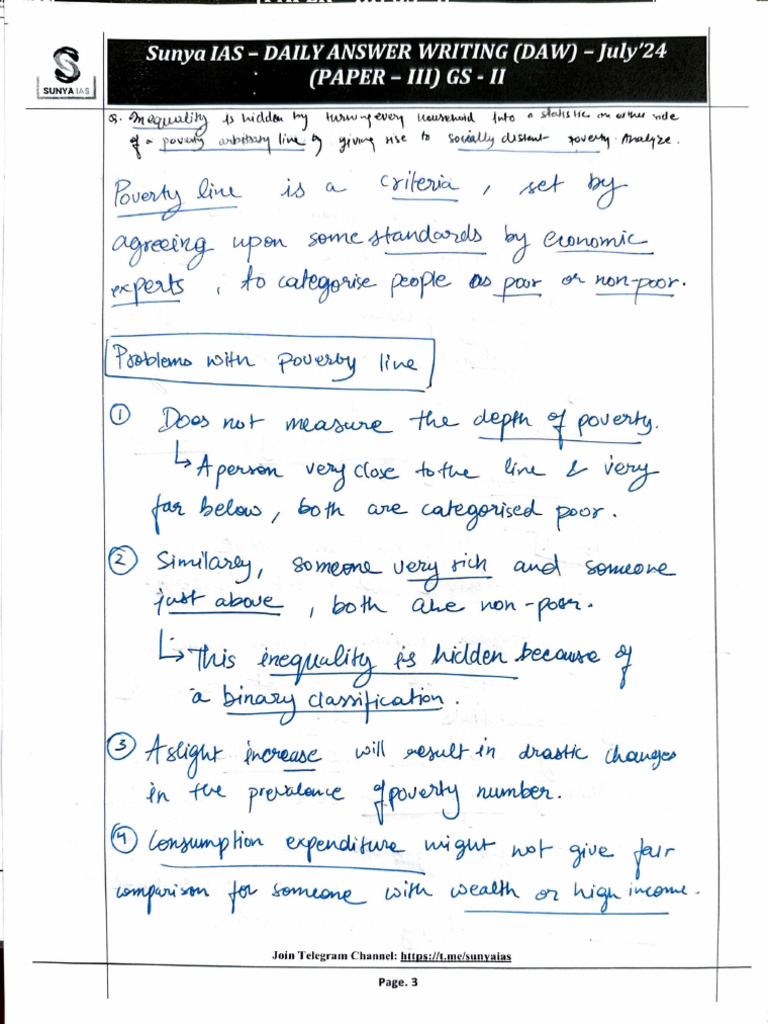 S
SUNYA IAS
Sunya IAS – DAILY ANSWER WRITING (DAW) – July'24
(PAPER – III) GS - II
Q. Inequality is hidden by turning every household into a statistic on either side
of a poverty arbitrary line by giving rise to socially distant poverty. Analyze.
Poverty line is a criteria, set by
agreeing upon some standards by economic
experts, to categorise people as poor or non-poor.
Problems with poverty line
① Does not measure the depth of poverty.
↳ A person very close to the line & very
far below, both are categorised poor.
② Similarly, someone very rich and someone
just above, both are non-poor.
↳ This inequality is hidden because of
a binary classification.
③ A slight increase will result in drastic changes
in the prevalence of poverty number.
④ Consumption expenditure might not give fair
comparison for someone with wealth or high income.
Join Telegram Channel: https://t.me/sunyaias
Page. 3